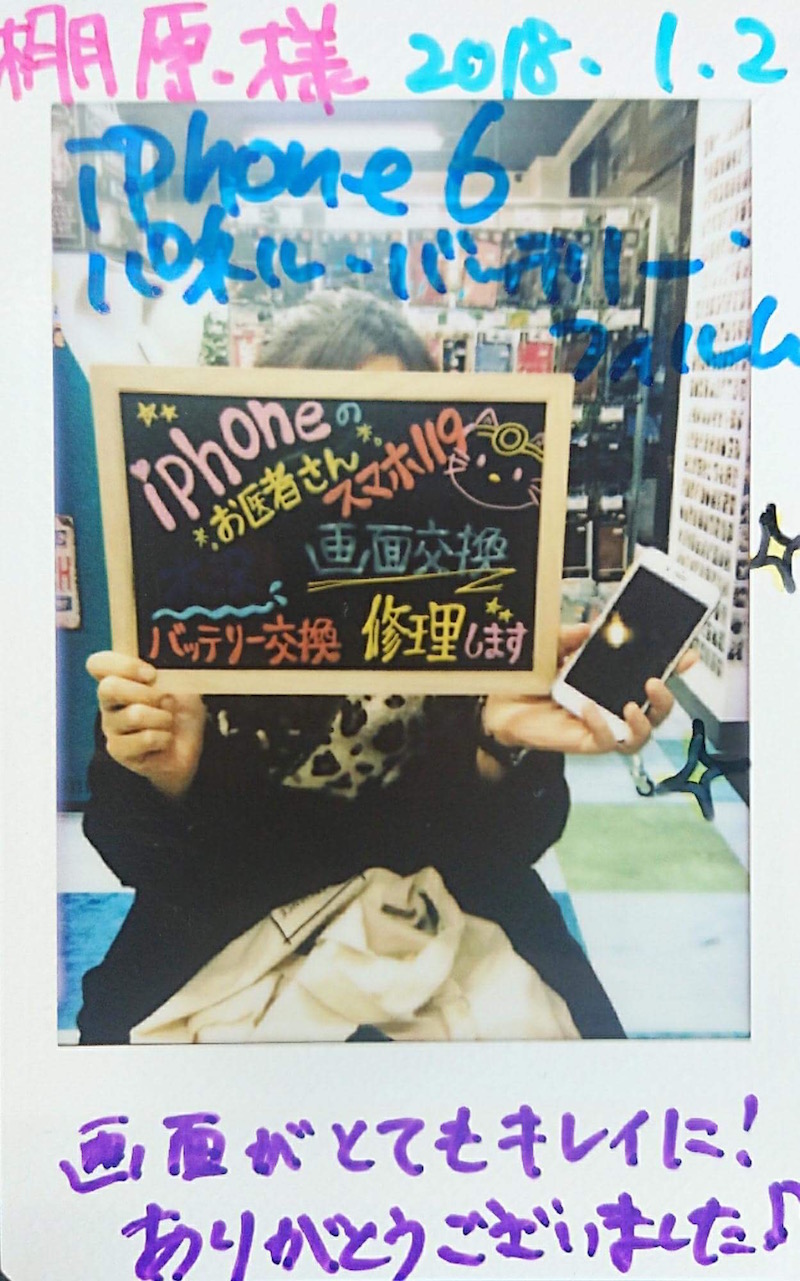 棚原様 2018.1.2
iphone 6
パネル・バッテリー・
フィルム
iphoneの
お医者さん
スマホ119
画面交換
水没
バッテリー交換 修理します
画面がとてもキレイに!
ありがとうございました♪